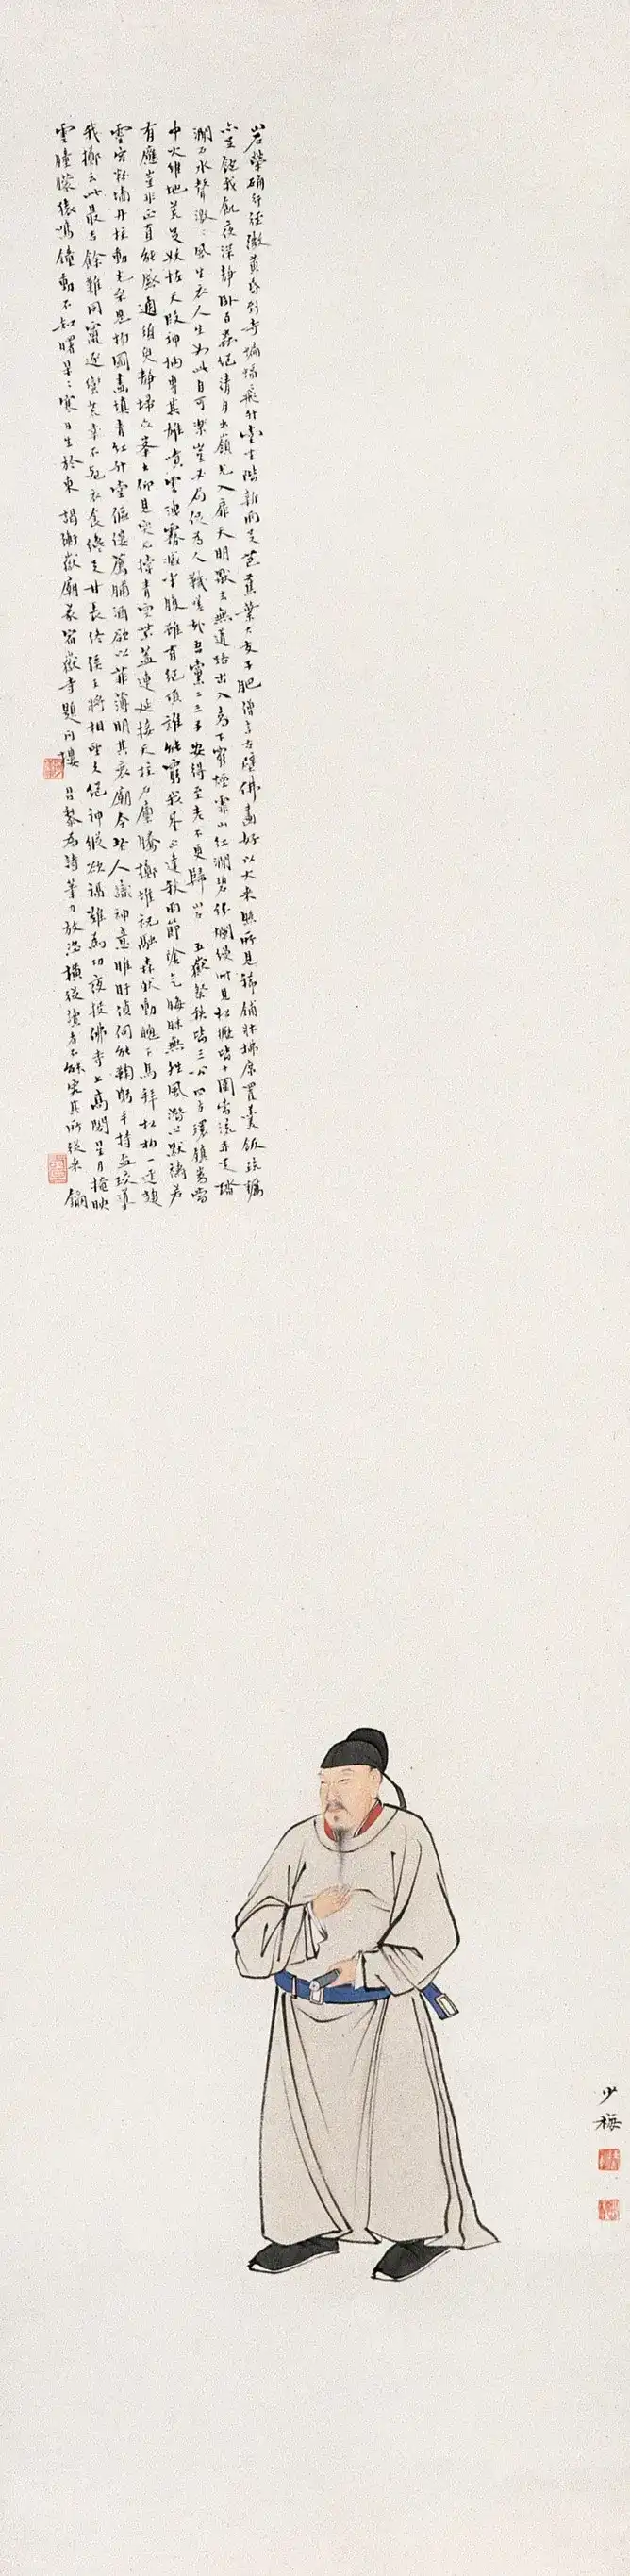 山石犖确行徑微黃昏到寺蝙蝠飛升堂坐階新雨足芭蕉葉大支子肥僧言古壁佛畫好以火來照所見稀鋪牀拂席置羹飯疏糲
亦足飽我飢夜深靜臥百蟲絕清月出嶺光入扉天明獨去無道路出入高下窮煙霏山紅澗碧紛爛漫時見松櫪皆十圍當流赤足蹋
澗石水聲激〻風生衣人生如此自可樂豈必局促為人鞿嗟哉吾黨二三子安得至老不更歸 山石 五嶽祭秩皆三公四方環鎮嵩當
中火維地荒足妖怪天假神柄專其雄噴雲泄霧藏半腹雖有絕頂誰能窮我來正逢秋雨節陰氣晦昧無清風潛心默禱若
有應豈非正直能感通須臾靜掃眾峯出仰見突兀撐青空紫蓋連延接天柱石廩騰擲堆祝融森然動魄下馬拜松柏一逕趨
靈宮粉墻丹柱動光彩鬼物圖畫填青紅升堂傴僂薦脯酒欲以菲薄明其衷廟令老人識神意睢盱偵伺能鞠躬手持盃珓導
我擲云此最吉餘難同竄逐蠻荒幸不死衣食纔足甘長終侯王將相望久絕神縱欲福難為功夜投佛寺上高閣星月掩映
雲朣朧猿鳴鐘動不知曙杲〻寒日生於東 謁衡嶽廟遂宿嶽寺題門樓 昌黎為詩筆力放恣橫從讀者不能究其所從來
少梅